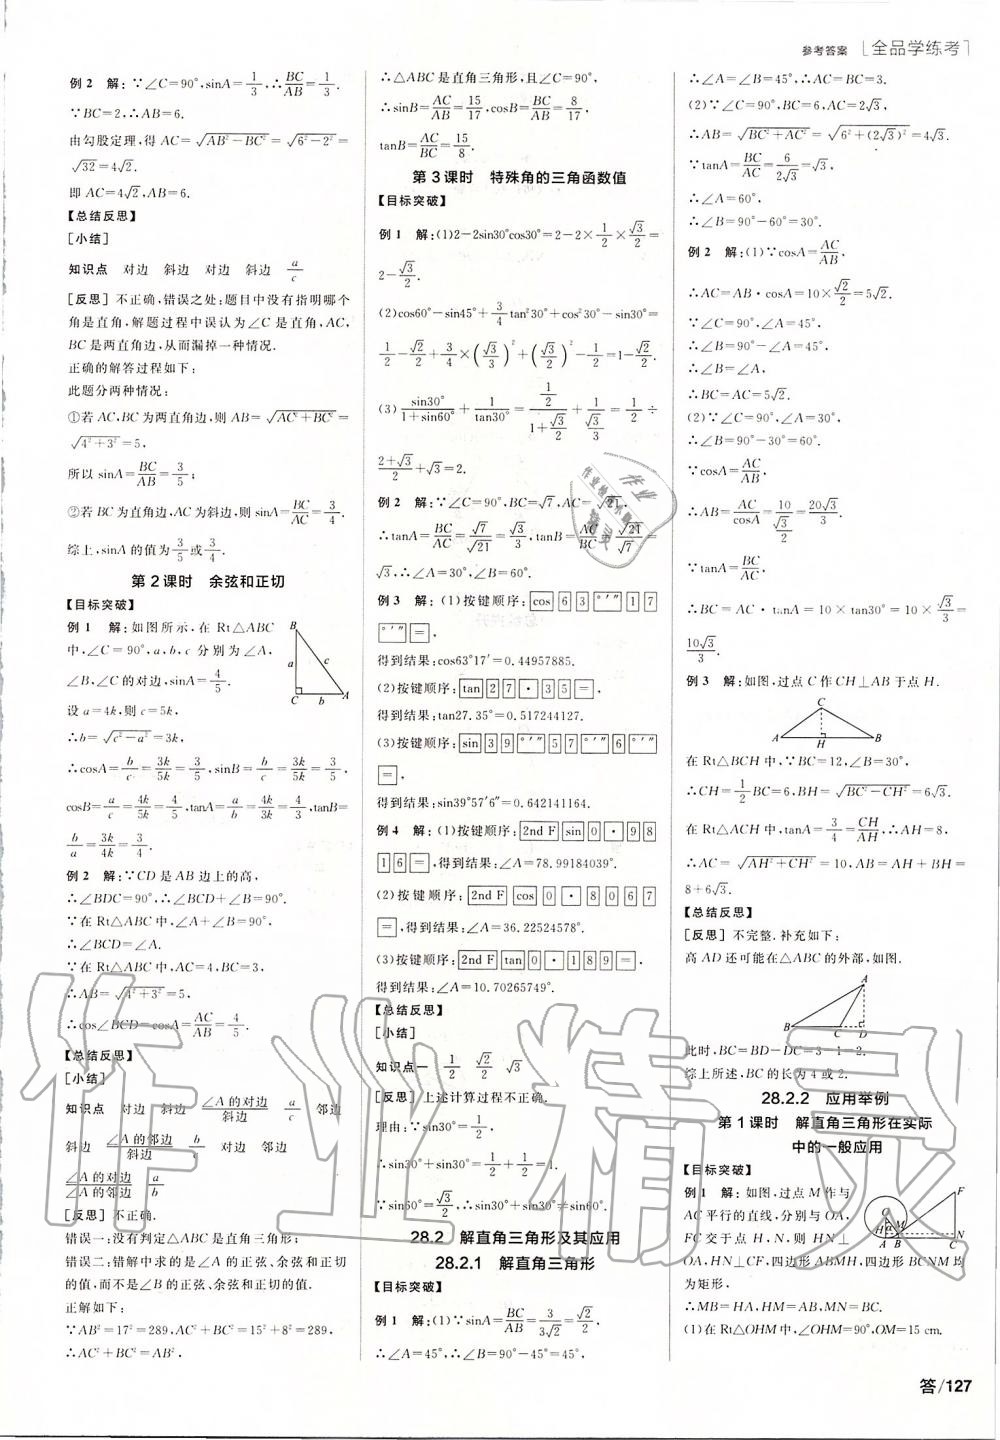 参考答案 全品学练考
例2 解:∵∠C=90°,sinA=1/3,∴BC/AB=1/3.
∵BC=2,∴AB=6.
由勾股定理,得 AC=√(AB²-BC²)=√(6²-2²)=
√32=4√2.
即 AC=4√2,AB=6.
【总结反思】
[小结]
知识点 对边 斜边 对边 斜边 a/c
[反思] 不正确,错误之处:题目中没有指明哪个
角是直角,解题过程中误认为∠C是直角,AC,
BC是两直角边,从而漏掉一种情况.
正确的解答过程如下:
此题分两种情况:
①若AC,BC为两直角边,则 AB=√(AC²+BC²)=
√(4²+3²)=5,
所以 sinA=BC/AB=3/5;
②若BC为直角边,AC为斜边,则 sinA=BC/AC=3/4.
综上,sinA的值为3/5或3/4.
第2课时 余弦和正切
【目标突破】
例1 解:如图所示,在 Rt△ABC
中,∠C=90°,a,b,c 分别为∠A,
∠B,∠C的对边,sinA=4/5.
设a=4k,则c=5k,
∴b=√(c²-a²)=3k,
∴cosA=b/c=3k/5k=3/5,sinB=b/c=3k/5k=3/5,
cosB=a/c=4k/5k=4/5,tanA=a/b=4k/3k=4/3,tanB=
b/a=3k/4k=3/4.
B
a c
C b A
例2 解:∵CD是AB边上的高,
∴∠BDC=90°,∴∠BCD+∠B=90°.
∵在Rt△ABC中,∠A+∠B=90°,
∴∠BCD=∠A.
∵在Rt△ABC中,AC=4,BC=3,
∴AB=√(4²+3²)=5,
∴cos∠BCD=cosA=AC/AB=4/5.
【总结反思】
[小结]
知识点 对边 斜边 ∠A的对边/斜边 a/c 邻边
斜边 ∠A的邻边/斜边 b/c 对边 邻边
∠A的对边/∠A的邻边 a/b
[反思] 不正确.
错误一:没有判定△ABC是直角三角形;
错误二:错解中求的是∠A的正弦、余弦和正切
的值,而不是∠B的正弦、余弦和正切的值.
正解如下:
∵AB²=17²=289,AC²+BC²=15²+8²=289,
∴AC²+BC²=AB²,
∴△ABC是直角三角形,且∠C=90°,
∴sinB=AC/AB=15/17,cosB=BC/AB=8/17,
tanB=AC/BC=15/8.
第3课时 特殊角的三角函数值
【目标突破】
例1 解:(1)2-2sin30°cos30°=2-2×1/2×√3/2=
2-√3/2.
(2)cos60°-sin45°+3/4tan²30°+cos²30°-sin30°=
1/2-√2/2+3/4×(√3/3)²+(√3/2)²-1/2=1-√2/2.
(3)sin30°/(1+sin60°)+1/tan30°=(1/2)/(1+√3/2)+1/(√3/3)=1/2÷
(2+√3)/2+√3=2.
例2 解:∵∠C=90°,BC=√7,AC=√21,
∴tanA=BC/AC=√7/√21=√3/3,tanB=AC/BC=√21/√7=
√3,∴∠A=30°,∠B=60°.
例3 解:(1)按键顺序:cos 6 3 °′″ 1 7
°′″ =,
得到结果:cos63°17′=0.44957885.
(2)按键顺序:tan 2 7 · 3 5 =,
得到结果:tan27.35°=0.517244127.
(3)按键顺序:sin 3 9 °′″ 5 7 °′″ 6 °′″
=,
得到结果:sin39°57′6″=0.642141164.
例4 解:(1)按键顺序:2nd F sin 0 · 9 8
1 6 =,得到结果:∠A=78.99184039°.
(2)按键顺序:2nd F cos 0 · 8 0 6 7
=,得到结果:∠A=36.22524578°.
(3)按键顺序:2nd F tan 0 · 1 8 9 =,
得到结果:∠A=10.70265749°.
【总结反思】
[小结]
知识点一 1/2 √2/2 √3
[反思] 上述计算过程不正确.
理由:∵sin30°=1/2,
∴sin30°+sin30°=1/2+1/2=1.
∵sin60°=√3/2,∴sin30°+sin30°≠sin60°.
28.2 解直角三角形及其应用
28.2.1 解直角三角形
【目标突破】
例1 解:(1)∵sinA=BC/AB=3/(3√2)=√2/2,
∴∠A=45°,∴∠B=90°-∠A=45°,
∴∠A=∠B=45°,∴AC=BC=3.
(2)∵∠C=90°,BC=6,AC=2√3,
∴AB=√(BC²+AC²)=√(6²+(2√3)²)=4√3.
∵tanA=BC/AC=6/(2√3)=√3,
∴∠A=60°,
∴∠B=90°-60°=30°.
例2 解:(1)∵cosA=AC/AB,
∴AC=AB·cosA=10×√2/2=5√2.
∵∠C=90°,∠A=45°,
∴∠B=90°-∠A=45°,
∴∠B=∠A,
∴BC=AC=5√2.
(2)∵∠C=90°,∠A=30°,
∴∠B=90°-30°=60°.
∵cosA=AC/AB,
∴AB=AC/cosA=10/(√3/2)=20√3/3.
∵tanA=BC/AC,
∴BC=AC·tanA=10×tan30°=10×√3/3=
10√3/3.
例3 解:如图,过点C作CH⊥AB于点H.
C
A H B
在Rt△BCH中,∵BC=12,∠B=30°,
∴CH=1/2BC=6,BH=√(BC²-CH²)=6√3.
在Rt△ACH中,tanA=3/4=CH/AH,∴AH=8,
∴AC=√(AH²+CH²)=10,AB=AH+BH=
8+6√3.
【总结反思】
[反思] 不完整.补充如下:
高AD还可能在△ABC的外部,如图.
A
B C D
此时,BC=BD-DC=3-1=2.
综上所述,BC的长为4或2.
28.2.2 应用举例
第1课时 解直角三角形在实际
中的一般应用
【目标突破】
例1 解:如图,过点M作与
AC平行的直线,分别与OA,
FC交于点H,N,则HN⊥
OA,HN⊥CF,四边形ABMH,四边形BCNM均
为矩形,
∴MB=HA,HM=AB,MN=BC.
(1)在Rt△OHM中,∠OHM=90°,OM=15 cm.
F
H M N
A B C
答/127
作业精灵